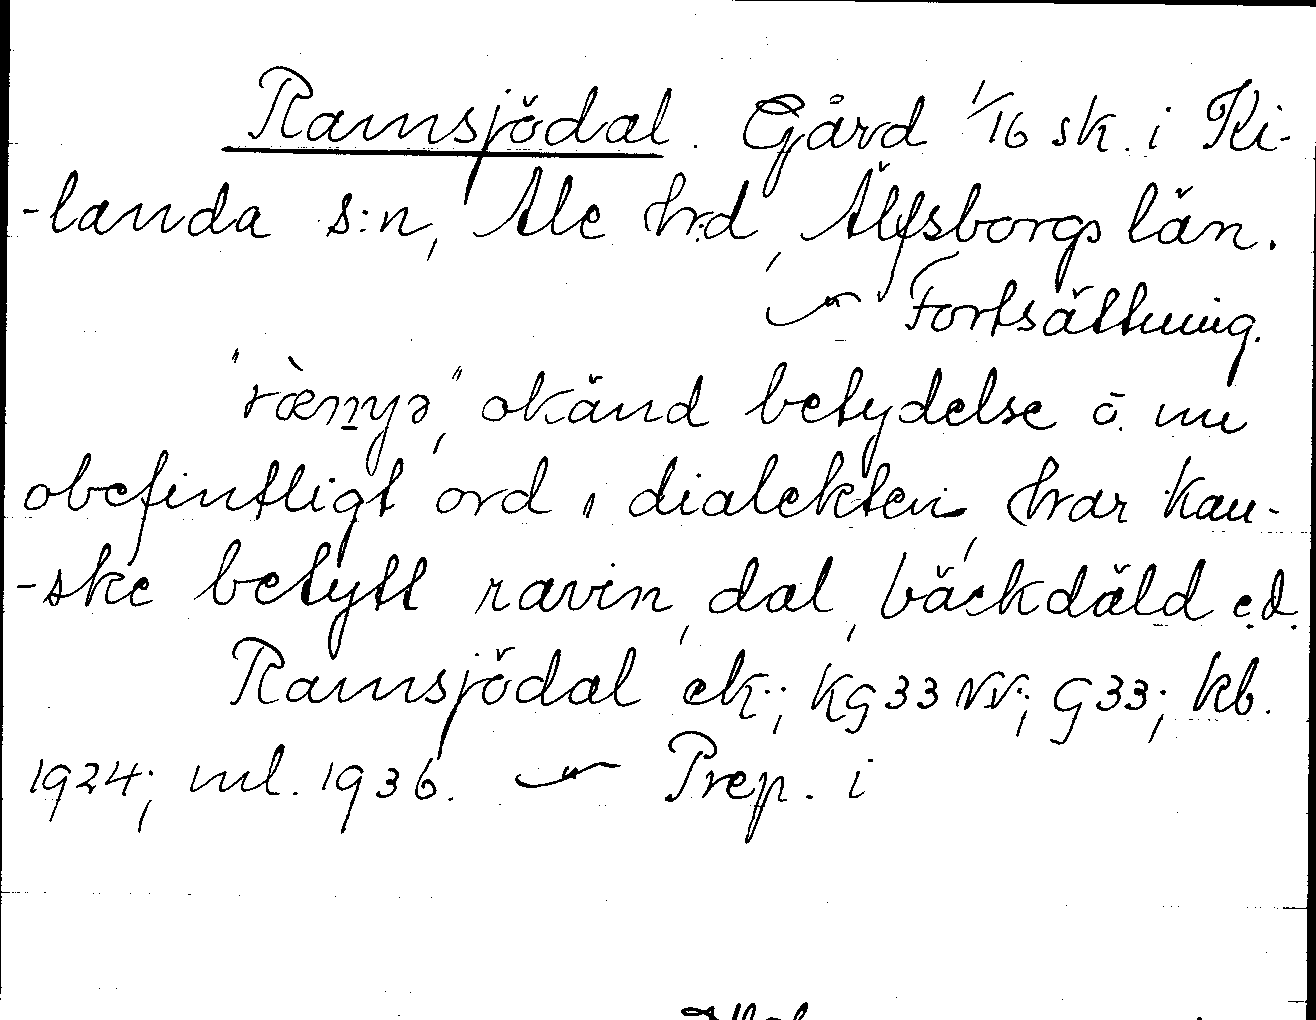 Ramsjödal. Gård 1/16 sk. i Ki-
-landa s:n, Ale hrd, Älfsborgs län.
~ Fortsättning.
"ræ̀nyə", okänd betydelse o. nu
obefintligt ord i dialekten, har kan-
-ske betytt ravin, dal, bäckdäld e.d.
Ramsjödal ek.; Kg 33 NV; G 33; kb.
1924; ml. 1936. ~ Prep. i